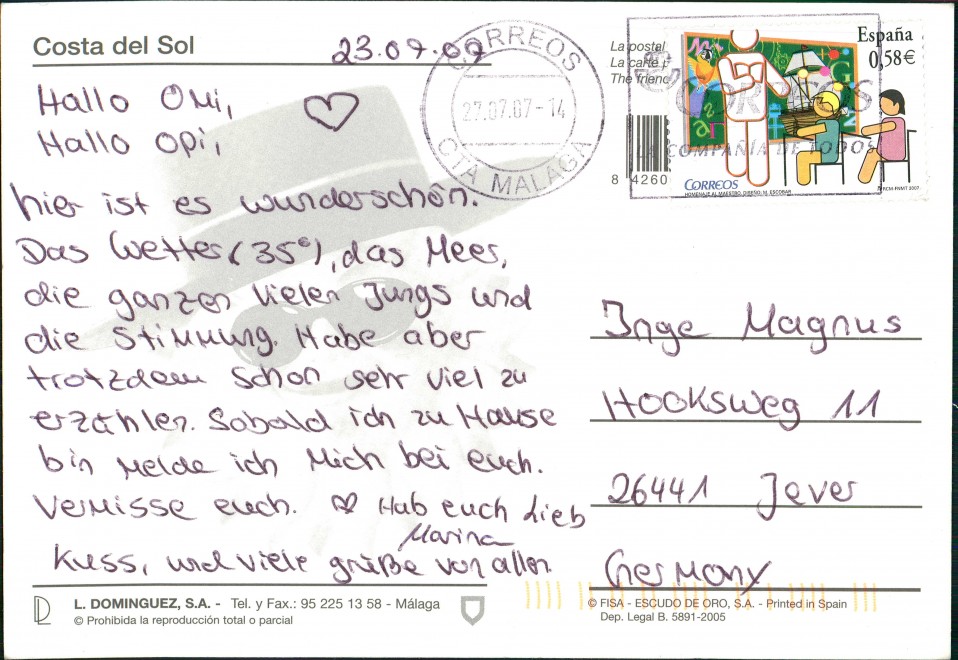 Costa del Sol
23.07.07
Hallo Omi,
Hallo Opi,
hier ist es wunderschön.
Das Wetter (35°), das Meer,
die ganzen vielen Jungs und
die Stimmung. Habe aber
trotzdem schon sehr viel zu
erzählen. Sobald ich zu Hause
bin melde ich mich bei euch.
Vermisse euch. ♡ Hab euch Lieb
Marina
Kuss, und viele grüße von allen
CORREOS
27.07.07-14
CTA MALAGA
La postal
La carte
The friend
España
0,58€
CORREOS
LA COMPAÑÍA DE TODOS
8 4260
Correos
HOMENAJE AL MAESTRO. DISEÑO: M. ESCOBAR
RCM-FNMT 2007
Inge Magnus
Hooksweg 11
26441 Jever
Germany
L. DOMINGUEZ, S.A. - Tel. y Fax.: 95 225 13 58 - Málaga
© Prohibida la reproducción total o parcial
© FISA - ESCUDO DE ORO, S.A. - Printed in Spain
Dep. Legal B. 5891-2005